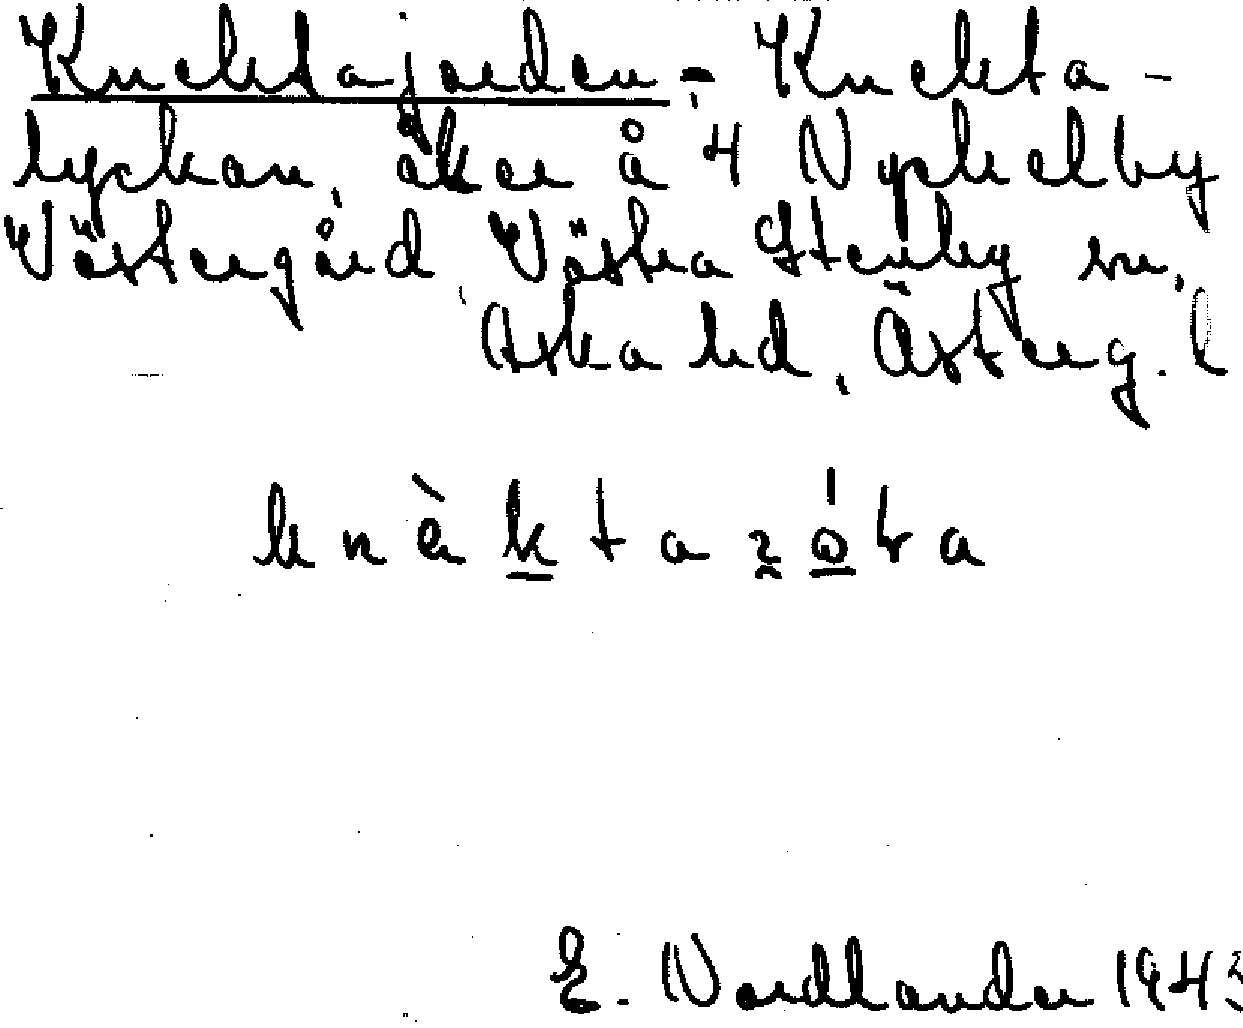 Knektajorden = Knekta-
lyckan, åker å 4 Nyckelby
Västergård Västra Stenby sn,
Aska hd, Österg. l
E. Nordlander 1943